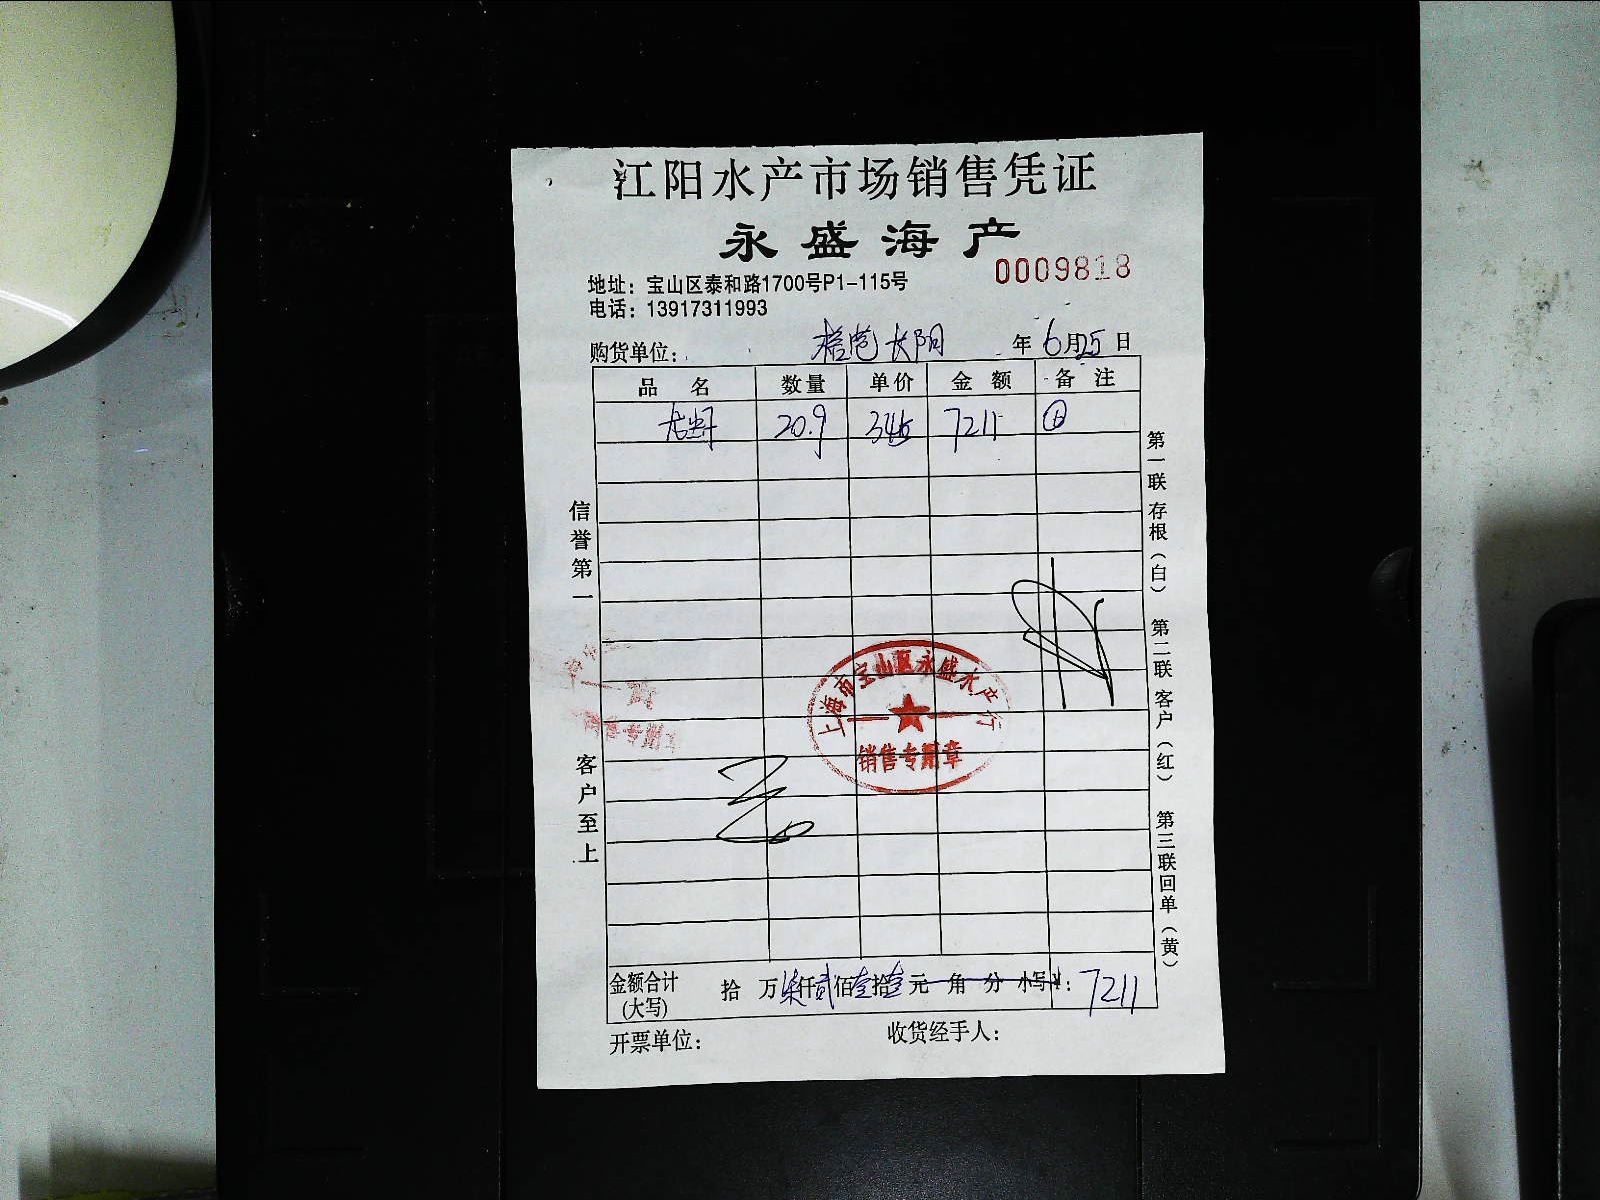 江阳水产市场销售凭证
永盛海产
0009818
地址：宝山区泰和路1700号P1-115号
电话：13917311993
购货单位： 长阳 年 6月25日
品 名 数量 单价 金 额 备 注
20.9 345 7211
信誉第一
客户至上
第一联 存根（白） 第二联 客户（红） 第三联 回单（黄）
上海市宝山区永盛水产行
销售专用章
售专用章
金额合计 拾 万柒仟贰佰壹拾壹元 角 分 小写¥：7211
(大写)
开票单位： 收货经手人：